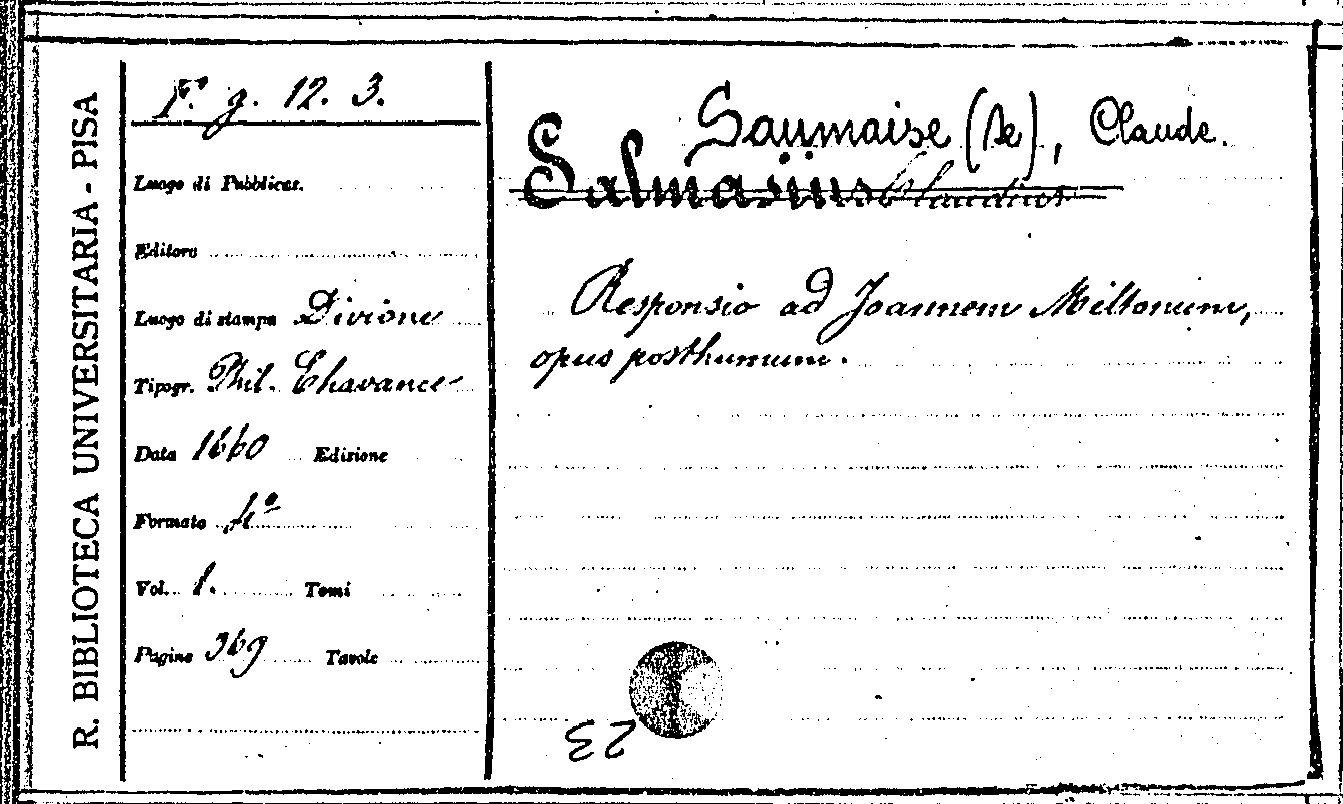 R. BIBLIOTECA UNIVERSITARIA - PISA
F. g. 12. 3.
Luogo di Pubblicaz.
Editore
Luogo di stampa Divione
Tipogr. Phil. Chavance
Data 1660 Edizione
Formato 4º
Vol. 1. Tomi
Pagine 369 Tavole
Saumaise (de), Claude.
Salmasius Claudius
Responsio ad Joannem Miltonum,
opus posthumum.
23